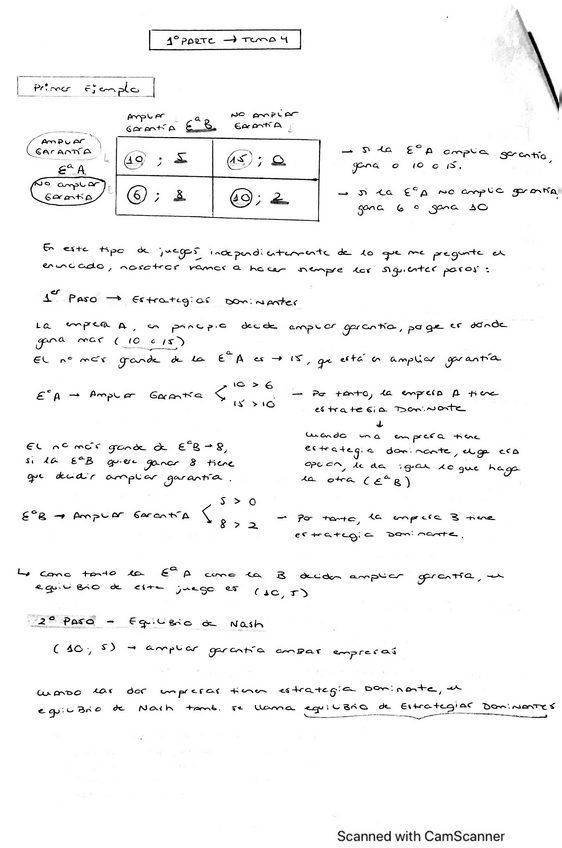 1º PARTE → TEMA 4
Primer Ejemplo
AMPLIAR GARANTÍA EªB NO AMPLIAR GARANTÍA
AMPLIAR GARANTÍA 10 ; 5 15 ; 0
EªA
NO AMPLIAR GARANTÍA 6 ; 8 10 ; 2
→ si la EªA amplia garantía, gana o 10 o 15.
→ si la EªA NO amplia garantía, gana 6 o gana 10
En este tipo de juegos, independientemente de lo que me pregunte el
enunciado, nosotros vamos a hacer siempre los siguientes pasos:
1er Paso → Estrategias Dominantes
La empresa A, en principio decide ampliar garantía, porque es donde
gana más (10 o 15)
El nº más grande de la EªA es → 15, que está en ampliar garantía
EªA → Ampliar Garantía < 10 > 6
15 > 10
— Por tanto, la empresa A tiene
estrategia Dominante
↓
cuando una empresa tiene
estrategia dominante, elige esa
opción, le da igual lo que haga
la otra (EªB)
El nº más grande de EªB → 8,
si la EªB quiere ganar 8 tiene
que decidir ampliar garantía.
EªB → Ampliar Garantía < 5 > 0
8 > 2
— Por tanto, la empresa B tiene
estrategia Dominante.
↳ Como tanto la EªA como la B deciden ampliar garantía, el
equilibrio de este juego es (10, 5)
2º Paso - Equilibrio de Nash
(10; 5) → ampliar garantía ambas empresas
cuando las dos empresas tienen estrategia Dominante, el
equilibrio de Nash tamb. se llama equilibrio de Estrategias Dominantes
Scanned with CamScanner